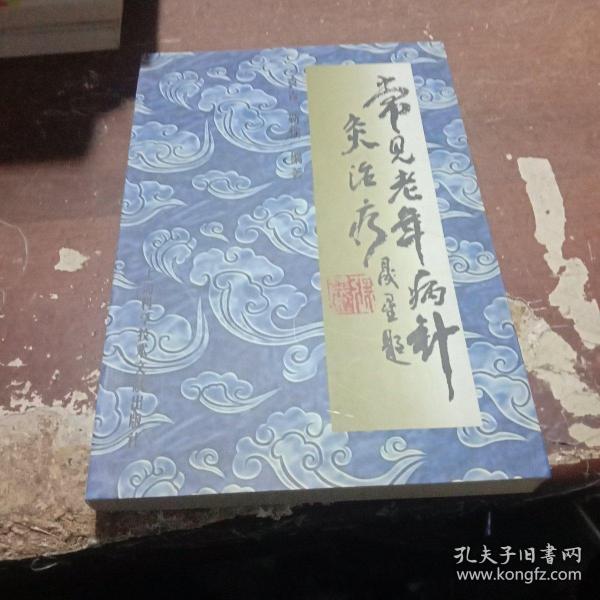 常见老年病针
灸治疗
晟星题
编著
科学技术文献出版社
孔夫子旧书网
www.kongfz.com